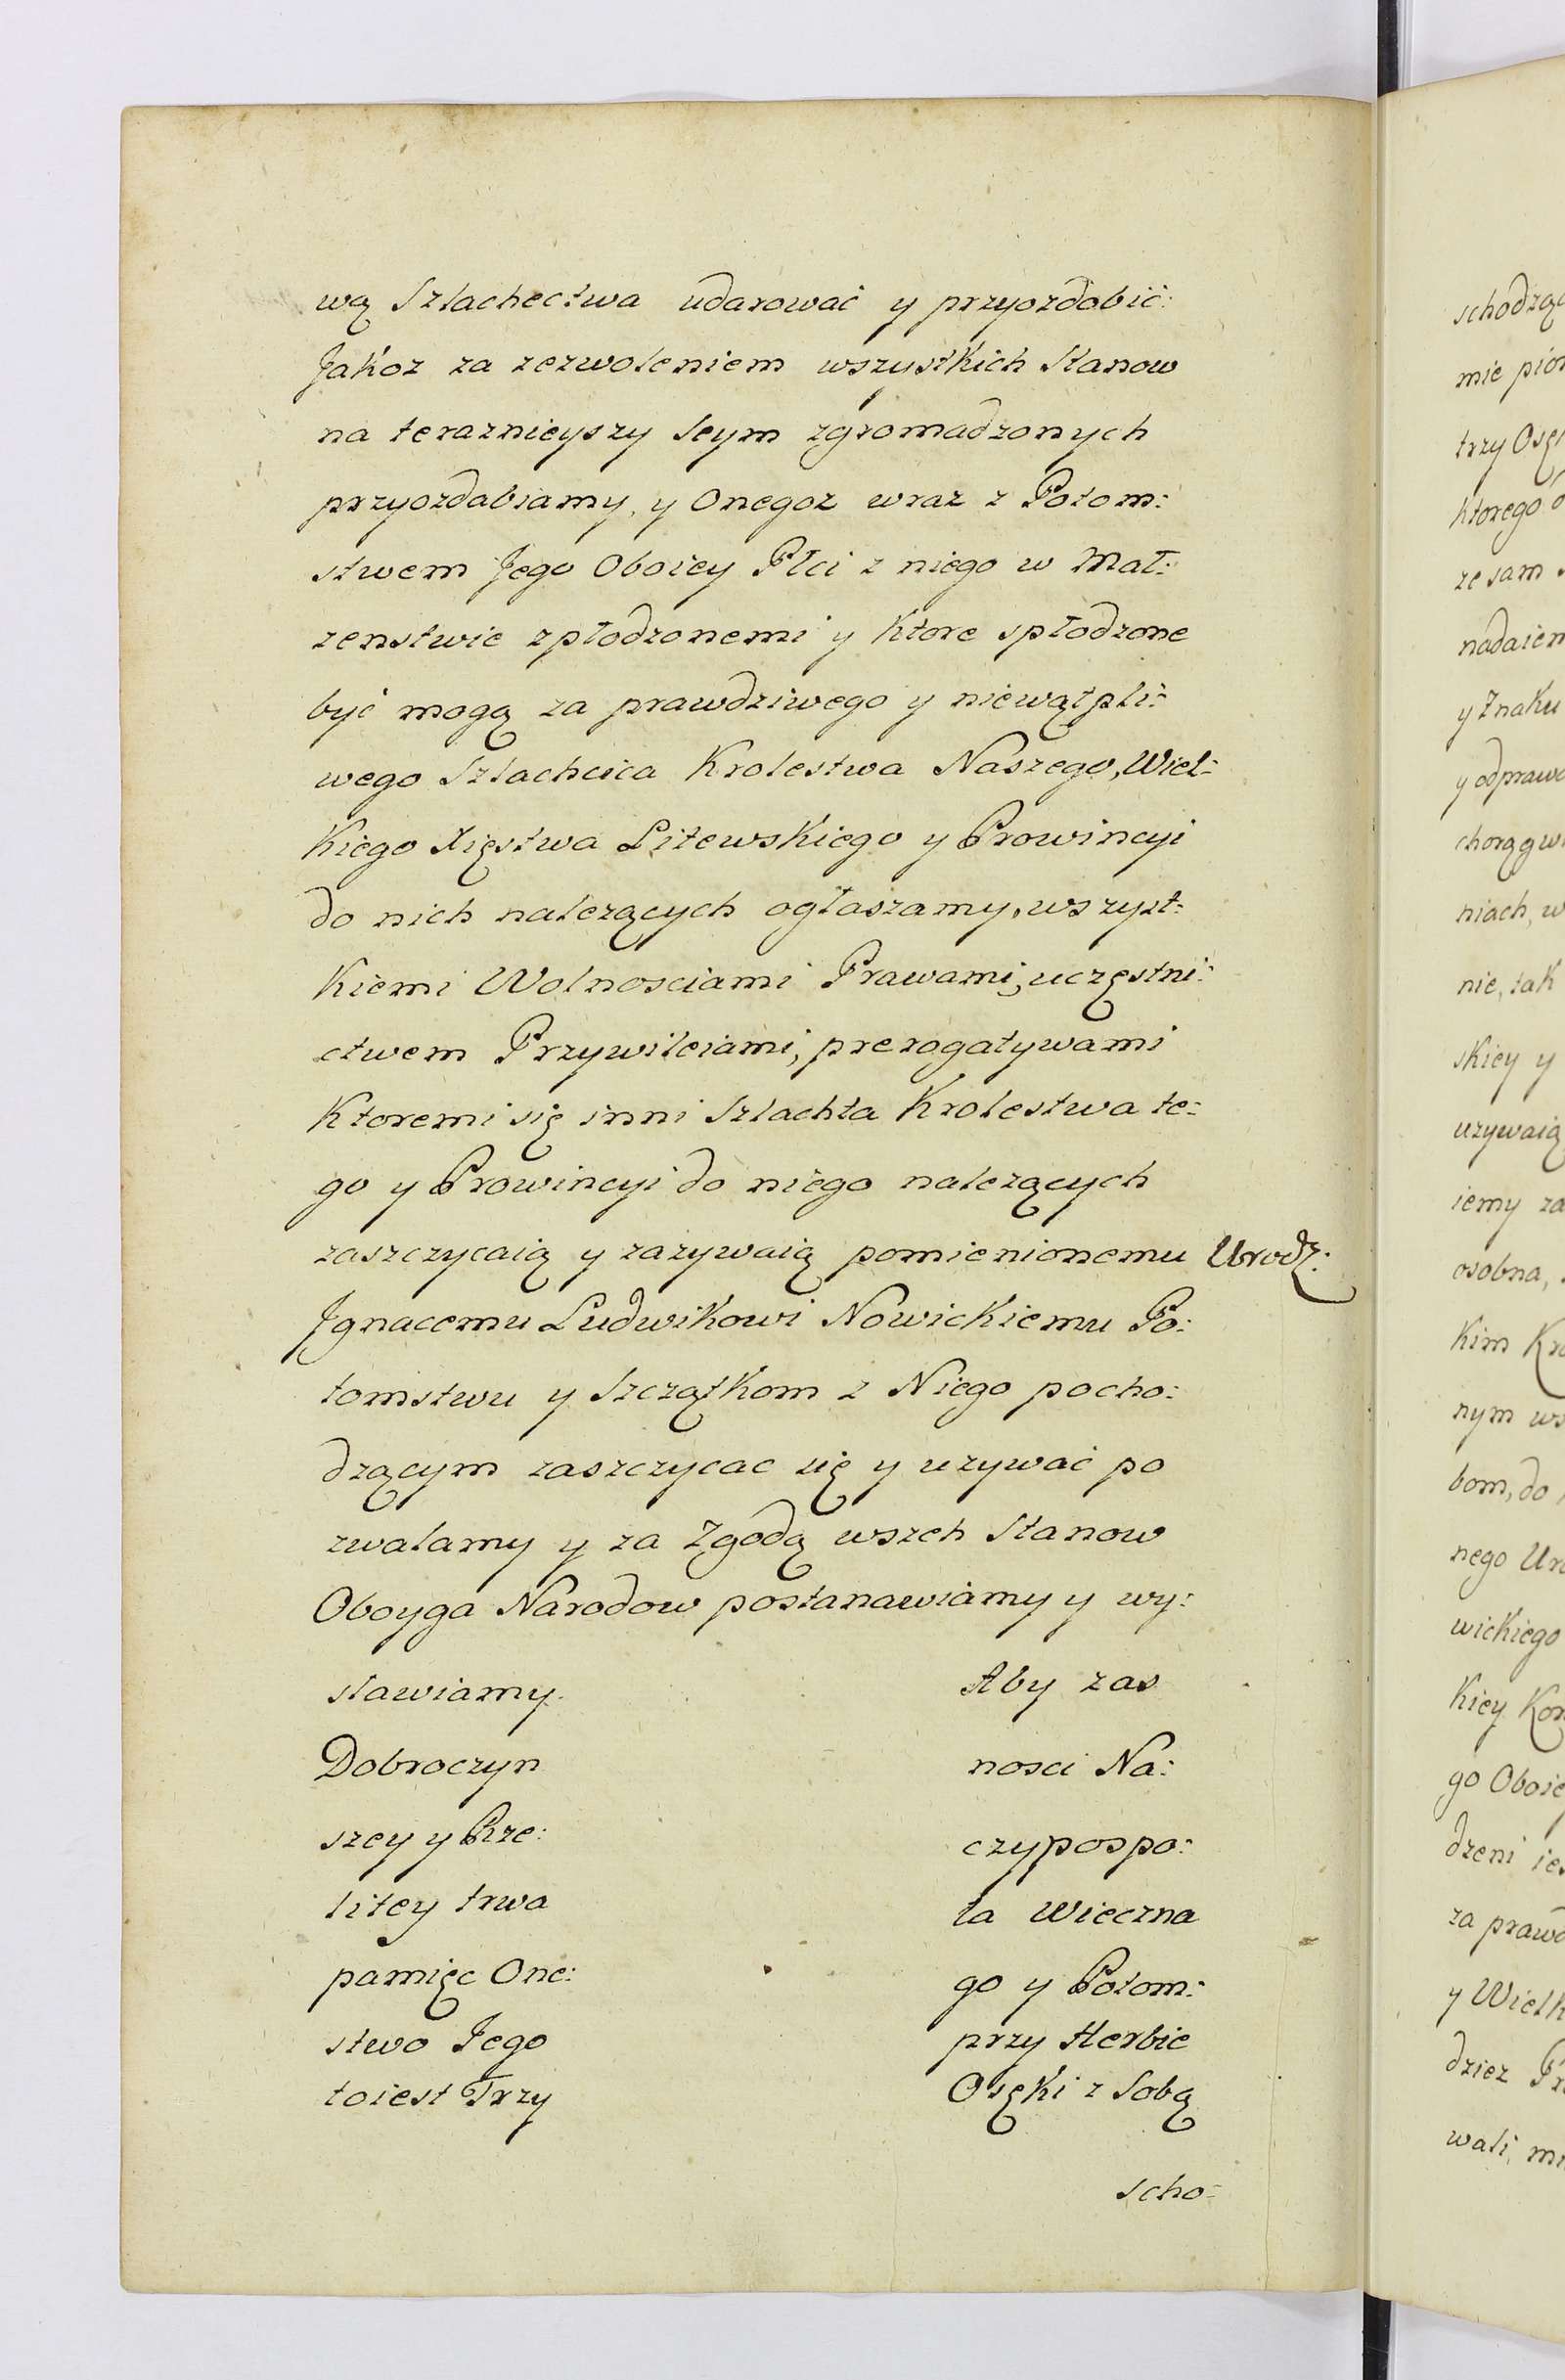 wą Szlachectwa udarować y przyozdobić:
Jakoz za zezwoleniem wszystkich Stanow
na teraznieyszy Seym zgromadzonych
przyozdabiamy, y Onegoz wraz z Potom:
stwem Jego Oboiey Płci z niego w Mał:
zenstwie zpłodzonemi y Ktore spłodzone
być mogą za prawdziwego y niewątpli:
wego Szlachcica Krolestwa Naszego, Wiel:
Kiego Xięstwa Litewskiego y Prowincyi
do nich nalezących ogłaszamy, wszyst:
Kiemi Wolnosciami Prawami, uczęstni:
ctwem Przywileiami, prerogatywami
Ktoremi się inni Szlachta Krolestwa te:
go y Prowincyi do niego nalezących
zaszczycaią y zazywaią pomienionemu Urodz:
Jgnacemu Ludwikowi Nowickiemu Po:
tomstwu y Szczątkom z Niego pocho:
dzącym zaszczycac się y uzywać po
zwalamy y za Zgodą wszech Stanow
Oboyga Narodow postanawiamy y wy:
stawiamy. Aby zas
Dobroczyn nosci Na:
szey y Rze: czypospo:
litey trwa ła Wieczna
pamięc One: go y Potom:
stwo Jego przy Herbie
toiest Trzy Osęki z Sobą
scho:
schodząc
mie
trzy
Ktorego
ze sam
nadaiem
y Znaku
y odprawo
chorągwi
niach, w
nie, tak
skiey y
uzywaią
iemy za
osobna,
Kim
nym
bom, do
nego
wickiego
Kiey
go Oboie
dzeni
za prawd
y Wielk
dziez
wali,